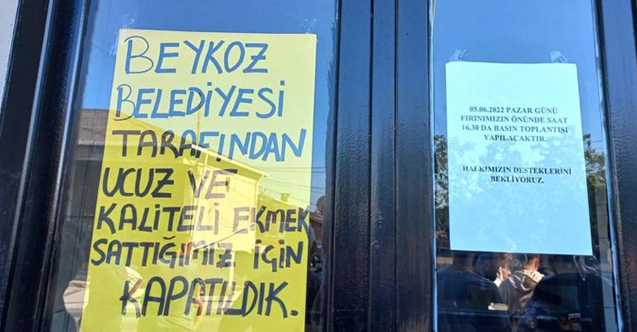 BEYKOZ
BELEDİYESİ
TARAFINDAN
UCUZ VE
KALİTELİ EKMEK
SATTIĞIMIZ İÇİN
KAPATILDIK.
05.06.2022 PAZAR GÜNÜ
FIRINIMIZIN ÖNÜNDE SAAT
16.30 DA BASIN TOPLANTISI
YAPILACAKTIR.
HALKIMIZIN DESTEKLERİNİ
BEKLİYORUZ.